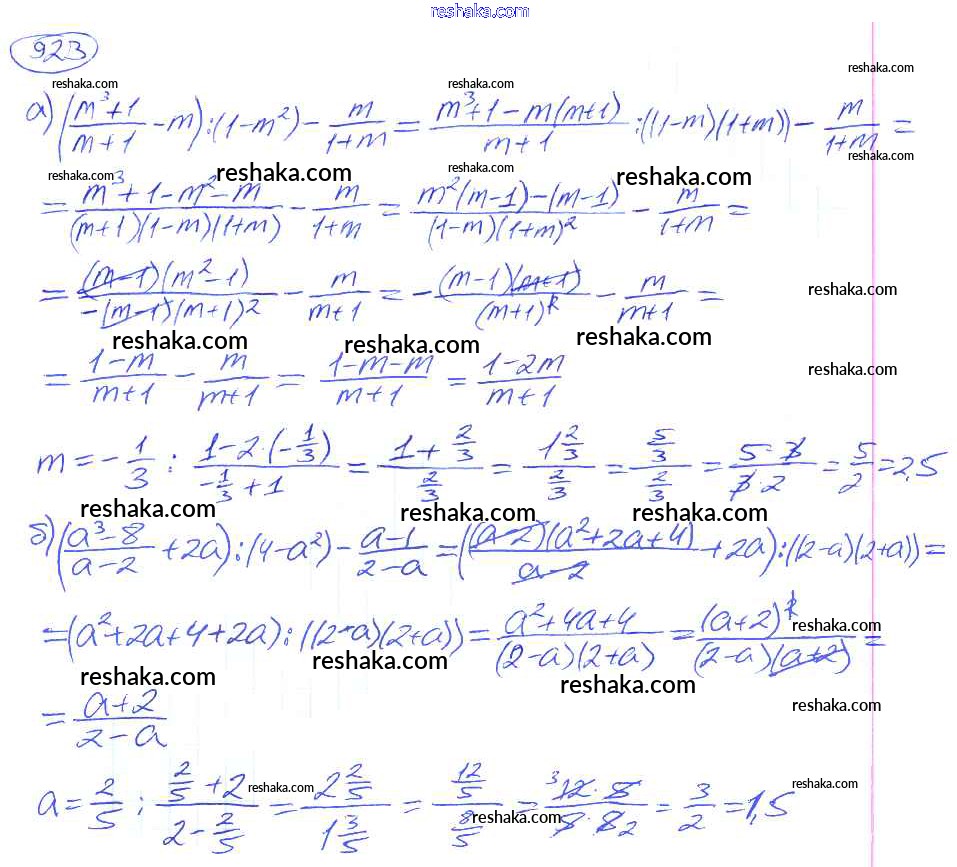 reshaka.com
923
reshaka.com reshaka.com reshaka.com
а) ((m³+1)/(m+1) - m) : (1-m²) - m/(1+m) = (m³+1-m(m+1))/(m+1) : ((1-m)(1+m)) - m/(1+m) =
reshaka.com reshaka.com reshaka.com reshaka.com reshaka.com
= (m³+1-m²-m)/((m+1)(1-m)(1+m)) - m/(1+m) = (m²(m-1)-(m-1))/((1-m)(1+m)²) - m/(1+m) =
= ((m-1)(m²-1))/(-(m-1)(m+1)²) - m/(m+1) = - ((m-1)(m+1))/(m+1)² - m/(m+1) =
reshaka.com
reshaka.com reshaka.com reshaka.com
= (1-m)/(m+1) - m/(m+1) = (1-m-m)/(m+1) = (1-2m)/(m+1)
reshaka.com
m = -1/3 : (1-2·(-1/3))/(-1/3+1) = (1+2/3)/(2/3) = (1 2/3)/(2/3) = (5/3)/(2/3) = (5·3)/(3·2) = 5/2 = 2,5
reshaka.com reshaka.com reshaka.com
б) ((a³-8)/(a-2) + 2a) : (4-a²) - (a-1)/(2-a) = (((a-2)(a²+2a+4))/(a-2) + 2a) : ((2-a)(2+a)) =
= (a²+2a+4+2a) : ((2-a)(2+a)) = (a²+4a+4)/((2-a)(2+a)) = (a+2)²/((2-a)(a+2)) =
reshaka.com
reshaka.com reshaka.com reshaka.com
= (a+2)/(2-a)
reshaka.com
a = 2/5 ; (2/5+2)/(2-2/5) = (2 2/5)/(1 3/5) = (12/5)/(8/5) = 3 (12·5)/(5·8) 2 = 3/2 = 1,5
reshaka.com reshaka.com reshaka.com